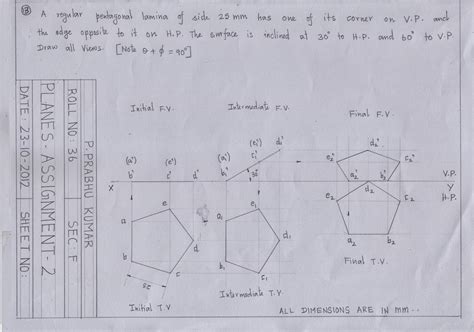 (13) A regular pentagonal lamina of side 25 mm has one of its corner on V.P. and
the edge opposite to it on H.P. The surface is inclined at 30° to H.P. and 60° to V.P
Draw all Views. [Note θ + φ = 90°]
Initial F.V. Intermediate F.V. Final F.V.
(a') (e')
b' c' d'
(a') (e')
b' c' d'
30°
d2'
e2' c2'
a2' b2'
X Y
V.P.
H.P.
a e b c d
25
a1 e1 b1 c1 d1
d2
e2 c2
a2 b2
Initial T.V Intermediate T.V. Final T.V.
ALL DIMENSIONS ARE IN MM..
P. PRABHU KUMAR
ROLL NO: 36 SEC: F
PLANES - ASSIGNMENT - 2
DATE: 23-10-2012 SHEET NO: